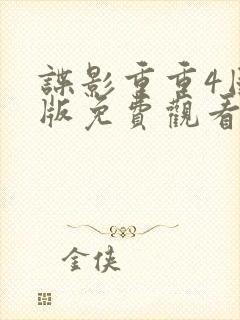 諜影重重4
版免費觀看
金俠